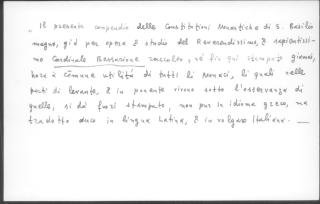 „ Il presente compendio delle Constitutioni Monastiche di S. Basilio
magno, già per opera & studio del Reverendissimo, & sapientissi-
mo Cardinale Bessarione raccolto, né fin qui stampato giamai,
hora à cõmune utilità di tutti li Monaci, li quali nelle
parti di levante, & in ponente vivono sotto l'osservanza di
quello, si dà fuori stampato, non pur in idioma greco, ma
tradotto anco in lingua Latina, & in volgare Italiana. —